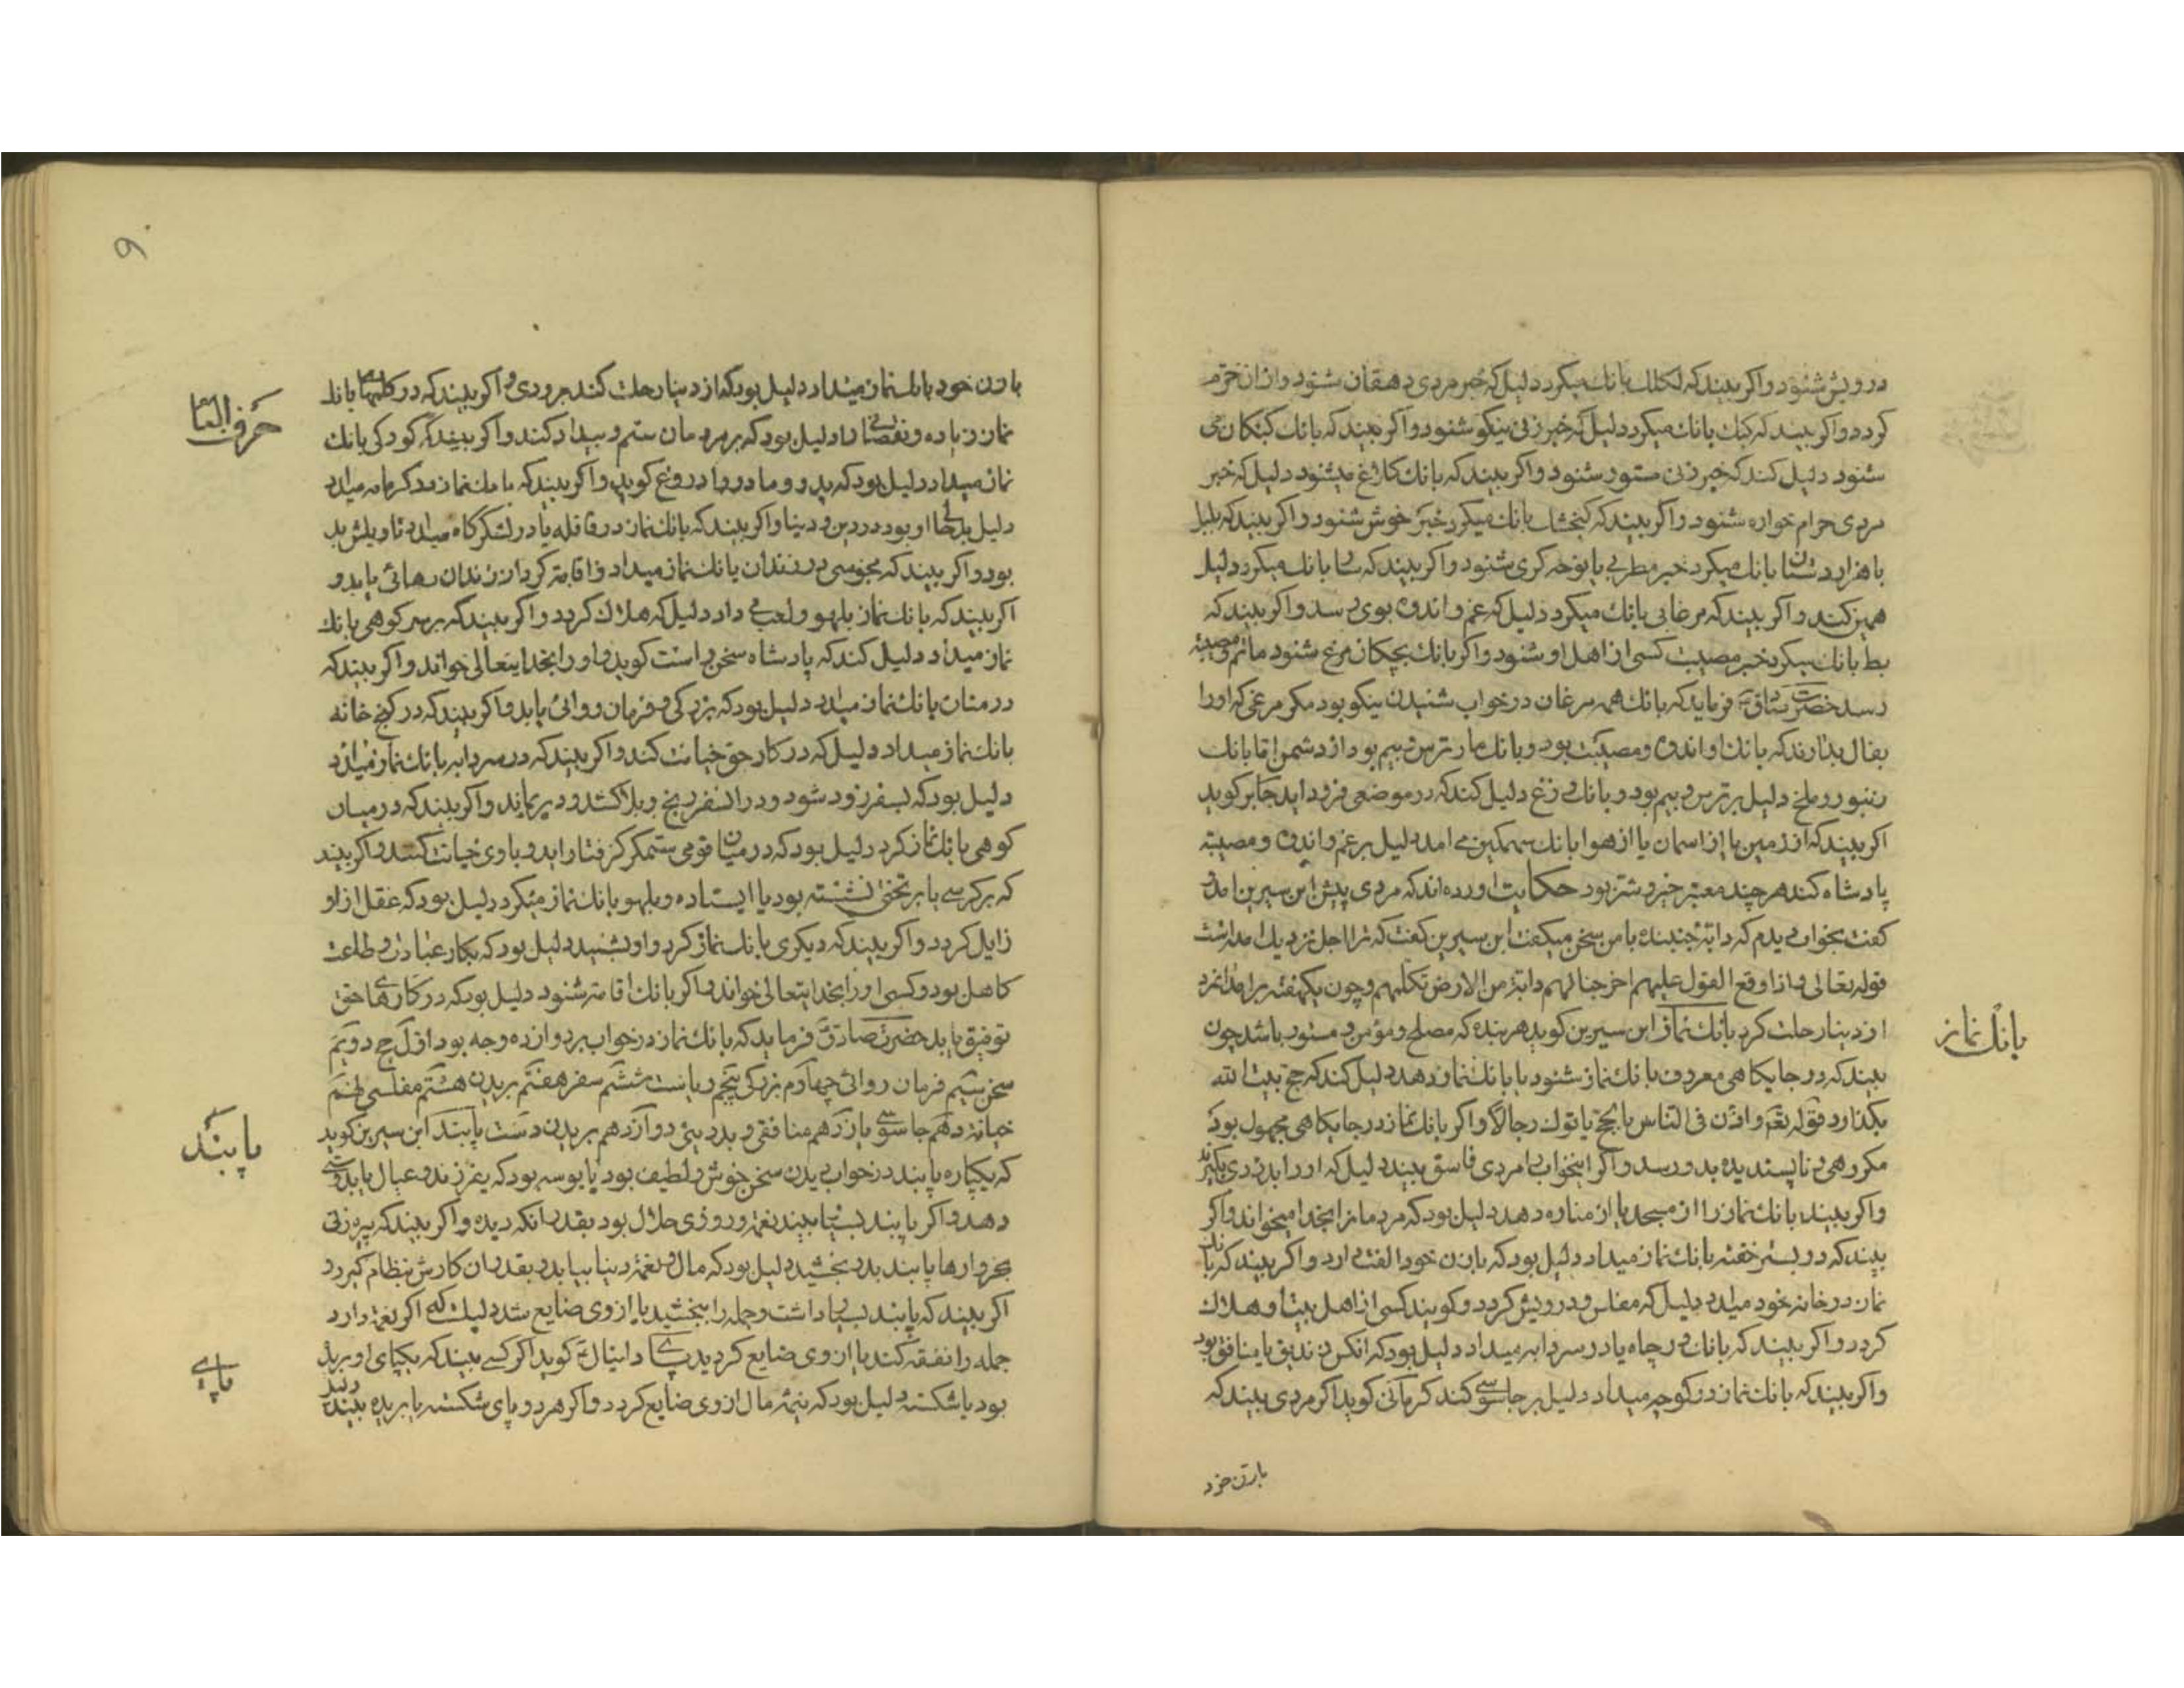 درویش شنود و اکر بیند که لکلک بانک میکرد دلیل که خبر مردی دهقان شنود و ازان خرّم
کردد و اکر بیند که کبک بانک میکرد دلیل که خبر زنی نیکو شنود و اکر بیند که بانک کبکان می
شنود دلیل کند که خبر زنی مستور شنود و اکر بیند که بانک کلاغ میشنود دلیل که خبر
مردی حرام خواره شنود و اکر بیند که کنجشک بانک میکرد خبر خوش شنود و اکر بیند که بلبل
یا هزاردستان بانک میکرد خبر مطربی یا نوحه کری شنود و اکر بیند که بانک میکرد دلیل
همین کند و اکر بیند که مرغابی بانک میکرد دلیل که غم و اندوه بوی رسد و اکر بیند که
بط بانک میکرد خبر مصیبت کسی از اهل او شنود و اکر بانک بچکان مرغ شنود ماتم و مصیبة
رسد حضرت صادق فرماید که بانک همه مرغان در خواب شنیدن نیکو بود مکر مرغی که او را
بفال بد دارند که بانک او اندوه و مصیبت بود و بانک مار ترس و بیم بود از دشمن اما بانک
زنبور و ملخ دلیل بر ترس و بیم بود و بانک وزغ دلیل کند که در موضعی فرود اید جابر کوید
اکر بیند که از زمین یا از اسمان یا از هوا بانک سهمکین می امد دلیل بر غم و اندوه و مصیبة
پادشاه کند هر چند معتبر خبر و شتر بود حکایت اورده اند که مردی پیش ابن سیرین امد و
کفت بخواب دیدم که دابّه جنبنده با من سخن میکفت ابن سیرین کفت که ترا اجل نزدیک امده است
قوله تعالی و اذا وقع القول علیهم اخرجنا لهم دابّة من الارض تکلّمهم و چون یکهفته برامد انمرد
از دنیا رحلت کرد بانک نماز ابن سیرین کوید هر بنده که مصلح و مؤمن و مستور باشد چون
بیند که در جایکاهی معروف بانک نماز شنود یا بانک نماز دهد دلیل کند که حج بیت الله
بکذارد قوله تعم و اذّن فی النّاس بالحجّ یاتوک رجالا و اکر بانک نماز در جایکاهی مجهول بود
مکروهی و ناپسندیده بدو رسد و اکر اینخواب را مردی فاسق بیند دلیل که او را بدزدی بکیرند
و اکر بیند بانک نماز را از مسجد یا از مناره دهد دلیل بود که مردمانرا بخدا میخواند و اکر
بیند که در بستر خفته بانک نماز میداد دلیل بود که با زن خود الفت دارد و اکر بیند که بانک
نماز در خانه خود میداد دلیل که مفلس و درویش کردد و کویند کسی از اهل بیت او هلاک
کردد و اکر بیند که بانک در چاه یا در سردابه میداد دلیل بود که انکس زندیق یا منافق بود
و اکر بیند که بانک نماز در کوچه میداد دلیل بر جاسوسی کند کرمانی کوید اکر مردی بیند که
بانک نماز
با زن خود
با زن خود بانک نماز میداد دلیل بود که از دنیا رحلت کند بزودی و اکر بیند که در کلمهای بانک
نماز زیاده و نقصانی را دلیل بود که بر مردمان ستم و بیداد کند و اکر بیند که کودکی بانک
نماز میداد دلیل بود که پدر و مادر را دروغ کوید و اکر بیند که بانک نماز در کرمابه میداد
دلیل بد او بود در دین و دنیا و اکر بیند که بانک نماز در قافله یا در لشکرگاه میداد تاویلش بد
بود و اکر بیند که مجوسی در زندان بانک نماز میداد و اقامة کرد از زندان رهائی یابد و
اکر بیند که بانک نماز بلهو و لعب می داد دلیل که هلاک کردد و اکر بیند که بر سر کوهی بانک
نماز میداد دلیل کند که پادشاه سخن راست کوید و او را بخدایتعالی خواند و اکر بیند که
در منان بانک نماز میداد دلیل بود که بزرکی و فرمان روائی یابد و اکر بیند که در کنج خانه
بانک نماز میداد دلیل که در کار حق خیانت کند و اکر بیند که در سردابه بانک نماز میداد
دلیل بود که بسفر زود شود و در انسفر رنج و بلا کشد و دیر بماند و اکر بیند که در میان
کوهی بانک نماز کرد دلیل بود که در میان قومی ستمکر کرفتار اید و با وی خیانت کنند و اکر بیند
که بر کرسی یا بر تختی نشسته بود یا ایستاده و بلهو بانک نماز میکرد دلیل بود که عقل از او
زایل کردد و اکر بیند که دیکری بانک نماز کرد و او بشنید دلیل بود که بکار عبادت و طاعت
کاهل بود و کسی او را بخدایتعالی خواند و اکر بانک اقامة شنود دلیل بود که در کارهای حق
توفیق یابد حضرت صادق فرماید که بانک نماز در خواب بر دوازده وجه بود اول حج دویم
سخن سیم فرمان روائی چهارم بزرکی پنجم ریاست ششم سفر هفتم بریدن هشتم مفلسی نهم
خیانة دهم جاسوسی یازدهم منافقی و بددینی دوازدهم بریدن دست پابند ابن سیرین کوید
که یکپاره پابند در خواب دیدن سخن خوش و لطیف بود یا بوسه بود که بفرزند و عیال یا بدوستی
دهد و اکر پابند بسیار بیند نعمة و روزی حلال بود بقدر انکه دیده و اکر بیند که پیرزنی
بخروارها پابند بدو بخشید دلیل بود که مال و نعمة دنیا بیابد و بقدر ان کارش نظام کیرد و
اکر بیند که پابند بسیار داشت و جمله را ببخشید یا از وی ضایع شد دلیلست که اکر نعمة دارد
جمله را نفقه کند یا از وی ضایع کردد پای دانیال کوید اکر کسی بیند که یکپای او بریده
بود یا شکسته دلیل بود که نیمه مال از وی ضایع کردد و اکر هر دو پای شکسته یا بریده بیند
پابند
پای
۹